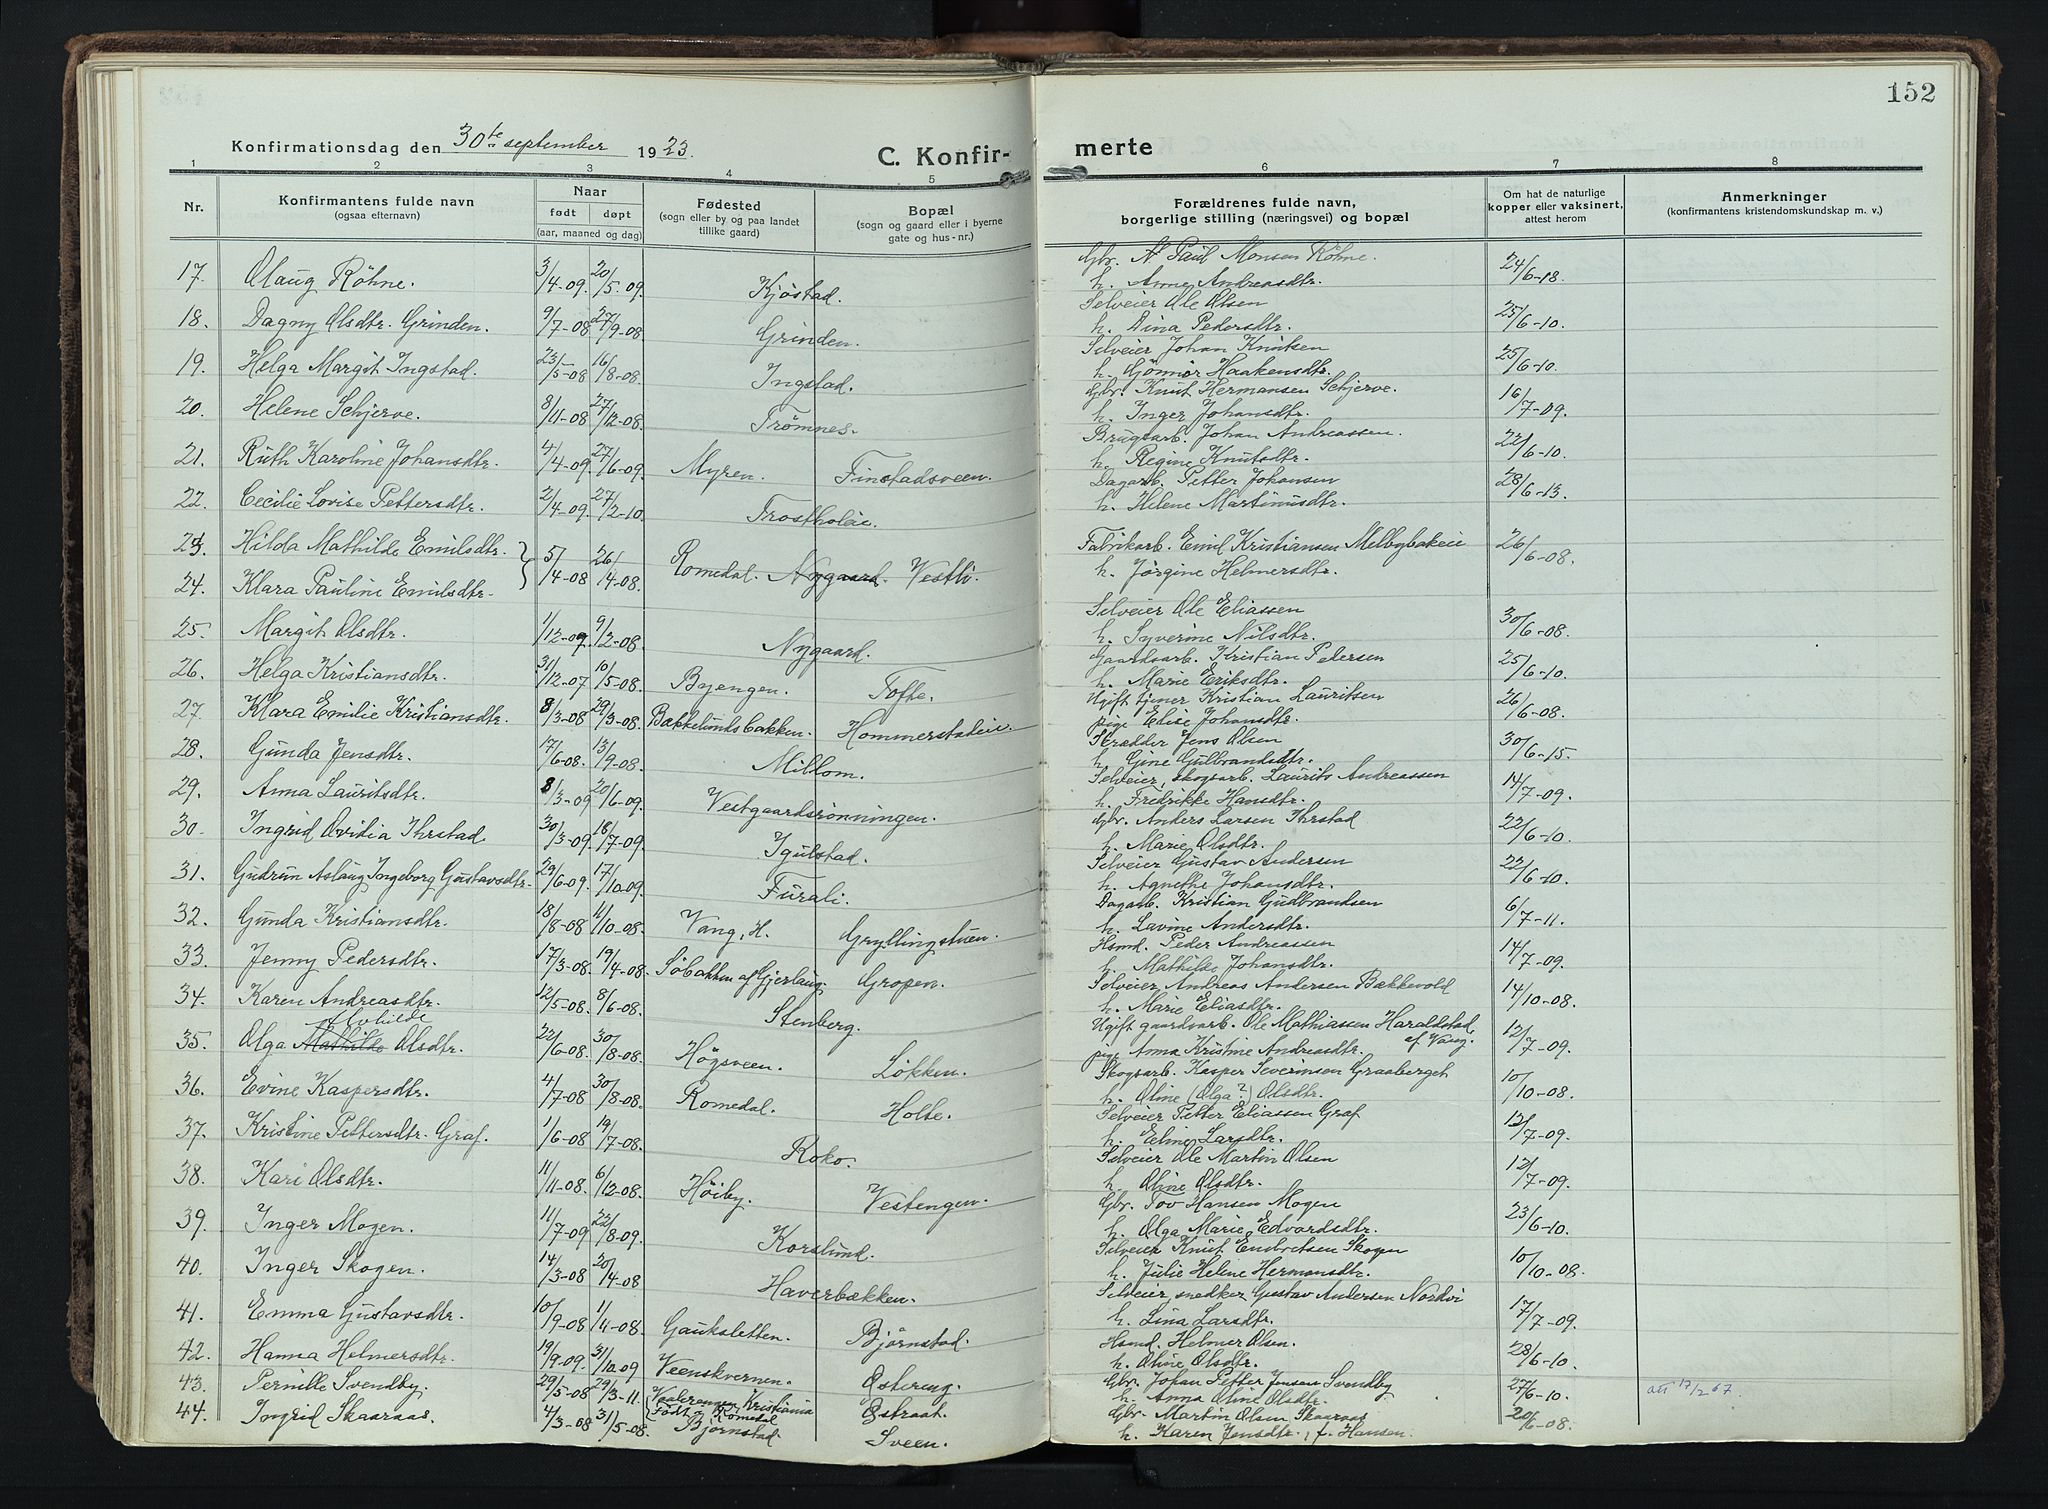 152
Konfirmationsdag den 30te september 1923.
C. Konfirmerte
1 2 3 4 5 6 7 8
Nr.
Konfirmantens fulde navn
(ogsaa efternavn)
Naar
født døpt
(aar, maaned og dag)
Fødested
(sogn eller by og paa landet
tillike gaard)
Bopæl
(sogn og gaard eller i byerne
gate og hus-nr.)
Forældrenes fulde navn,
borgerlige stilling (næringsvei) og bopæl
Om hat de naturlige
kopper eller vaksinert,
attest herom
Anmerkninger
(konfirmantens kristendomskundskap m. v.)
17. Olaug Röhne. 3/4-09. 20/5-09. Kjøstad. Gbr. Paul Monsen Röhne. 24/6-18.
h. Anne Andreasdtr.
18. Dagny Olsdtr. Grinden. 9/7-08 27/9-08. Grinden. Selveier Ole Olsen 25/6-10.
h. Dina Pedersdtr.
19. Helga Margit Ingstad. 23/5-08 16/8-08. Ingstad. Selveier Johan Knutsen 25/6-10.
h. Gönnor Haakensdtr.
20. Helene Schjerve. 8/11-08 27/12-08. Trömnes. Gbr. Knut Hermansen Schjerve. 16/7-09.
h. Inger Johansdtr.
21. Ruth Karoline Johansdtr. 4/4-09. 27/6-09. Myren. Finstadsveen. Brugsarb. Johan Andreassen. 22/6-10.
h. Regine Knutsdtr.
22. Cecilie Lovise Pettersdtr. 2/4-09. 27/2-10. Trostholeie. Dagarb. Petter Johansen 28/6-13.
h. Helene Martinusdtr.
23. Hilda Mathilde Emilsdtr. 5/4-08 26/4-08. Romedal. Nygaard. Vestli. Fabrikarb. Emil Kristiansen Melbybakeie 26/6-08.
24. Klara Pauline Emilsdtr. h. Jörgine Helmersdtr.
25. Margit Olsdtr. 1/12-07. 9/2-08. Nygaard. Selveier Ole Eliassen 30/6-08.
h. Syverine Nilsdtr.
26. Helga Kristiansdtr. 31/12-07 10/5-08. Byengen. Tofte. Gaardsarb. Kristian Pedersen 25/6-10.
h. Marie Eriksdtr.
27. Klara Emilie Kristiansdtr. 8/3-08 29/3-08. Bækkelundsbakken. Hommerstadeie. Ugift tjener Kristian Lauritsen 26/6-08.
pige Elise Johansdtr.
28. Gunda Jensdtr. 17/6-08. 13/9-08. Millom. Skrædder Jens Olsen 30/6-15.
h. Gine Gulbrandsdtr.
29. Anna Lauritsdtr. 8/3-09 20/6-09. Vestgaardsrönningen. Selveier, skogsarb. Laurits Andreassen 14/7-09.
h. Fredrikke Hansdtr.
30. Ingrid Ovidia Ihrstad 30/3-09. 18/7-09. Igulstad. Gbr. Anders Larsen Ihrstad 22/6-10.
h. Marie Olsdtr.
31. Gudrun Aslaug Ingeborg Gustavsdtr. 23/6-09. 17/10-09. Furali. Selveier Gustav Andersen 22/6-10.
h. Agnethe Johansdtr.
32. Gunda Kristiansdtr. 18/8-08 11/10-08. Vang, H. Gryllingstuen. Dagarb. Kristian Gudbrandsen 6/7-11.
h. Lavine Andersdtr.
33. Jenny Pedersdtr. 17/3-08. 19/4-08. Söbakken af Gjerlaug. Gropen. Hsmd. Peder Andreassen 14/7-09.
h. Mathilde Johansdtr.
34. Karen Andreasdtr. 12/5-08. 8/6-08. Stenberg. Selveier Andreas Andersen Bækkevold 14/10-08.
h. Marie Eliasdtr.
35. Olga Mathilde Alvhilde Olsdtr. 22/6-08. 30/8-08. Högsveen. Lökken. Ugift gaardsarb. Ole Mathiassen Haraldstad, af Vang. 12/7-09.
pige Anna Kristine Andreasdtr.
36. Evine Kaspersdtr. 4/7-08 30/8-08. Romedal. Holte. Skogsarb. Kasper Severinsen Graaberget 10/10-08.
h. Oline (Olga?) Olsdtr.
37. Kristine Pettersdtr. Graf. 1/6-08 19/7-08. Roko. Selveier Petter Eliassen Graf 12/7-09.
h. Eline Larsdtr.
38. Kari Olsdtr. 11/11-08. 6/12-08. Höiby. Vestengen. Selveier Ole Martin Olsen 12/7-09.
h. Oline Olsdtr.
39. Inger Mogen. 11/7-09 22/8-09. Korslund. Gbr. Tov Hansen Mogen 23/6-10.
h. Olga Marie Edvardsdtr.
40. Inger Skogen. 14/3-08 20/4-08 Haverbækken. Selveier Knut Embretsen Skogen 10/10-08.
h. Julie Helene Hermansdtr.
41. Emma Gustavsdtr. 10/9-08 1/11-08. Gauksletten. Bjørnstad. Selveier, snedker Gustav Andersen Nordvi 17/7-09.
h. Lina Larsdtr.
42. Hanna Helmersdtr. 19/9-09. 31/10-09 Veenskvernen. Østereng. Hsmd. Helmer Olsen. 28/6-10.
h. Oline Olsdtr.
43. Pernille Svendby. 29/5-08 29/3-11. Vaalerengen, Kristiania Født i Romedal Østraat. Gbr. Johan Petter Jensen Svendby 27/6-10. att 17/2 67.
h. Anna Oline Olsdtr.
44. Ingrid Skaaraas. 4/3-08 31/5-08. Bjørnstad. Sveen. Gbr. Martin Olsen Skaaraas 20/6-08.
h. Karen Jensdtr., f. Hansen.